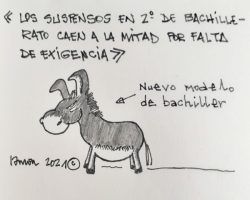 « LOS SUSPENSOS EN 2º DE BACHILLE-
RATO CAEN A LA MITAD POR FALTA
DE EXIGENCIA »
NUEVO MODELO
DE BACHILLER
2021 ©